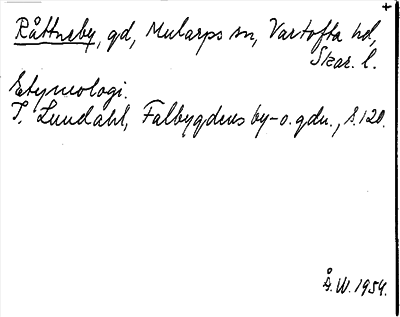 Råttneby, gd, Mularps sn, Vartofta hd,
Skar. l.
Etymologi.
I. Lundahl, Falbygdens by-o.gdn., s.120.
Å.W.1954.